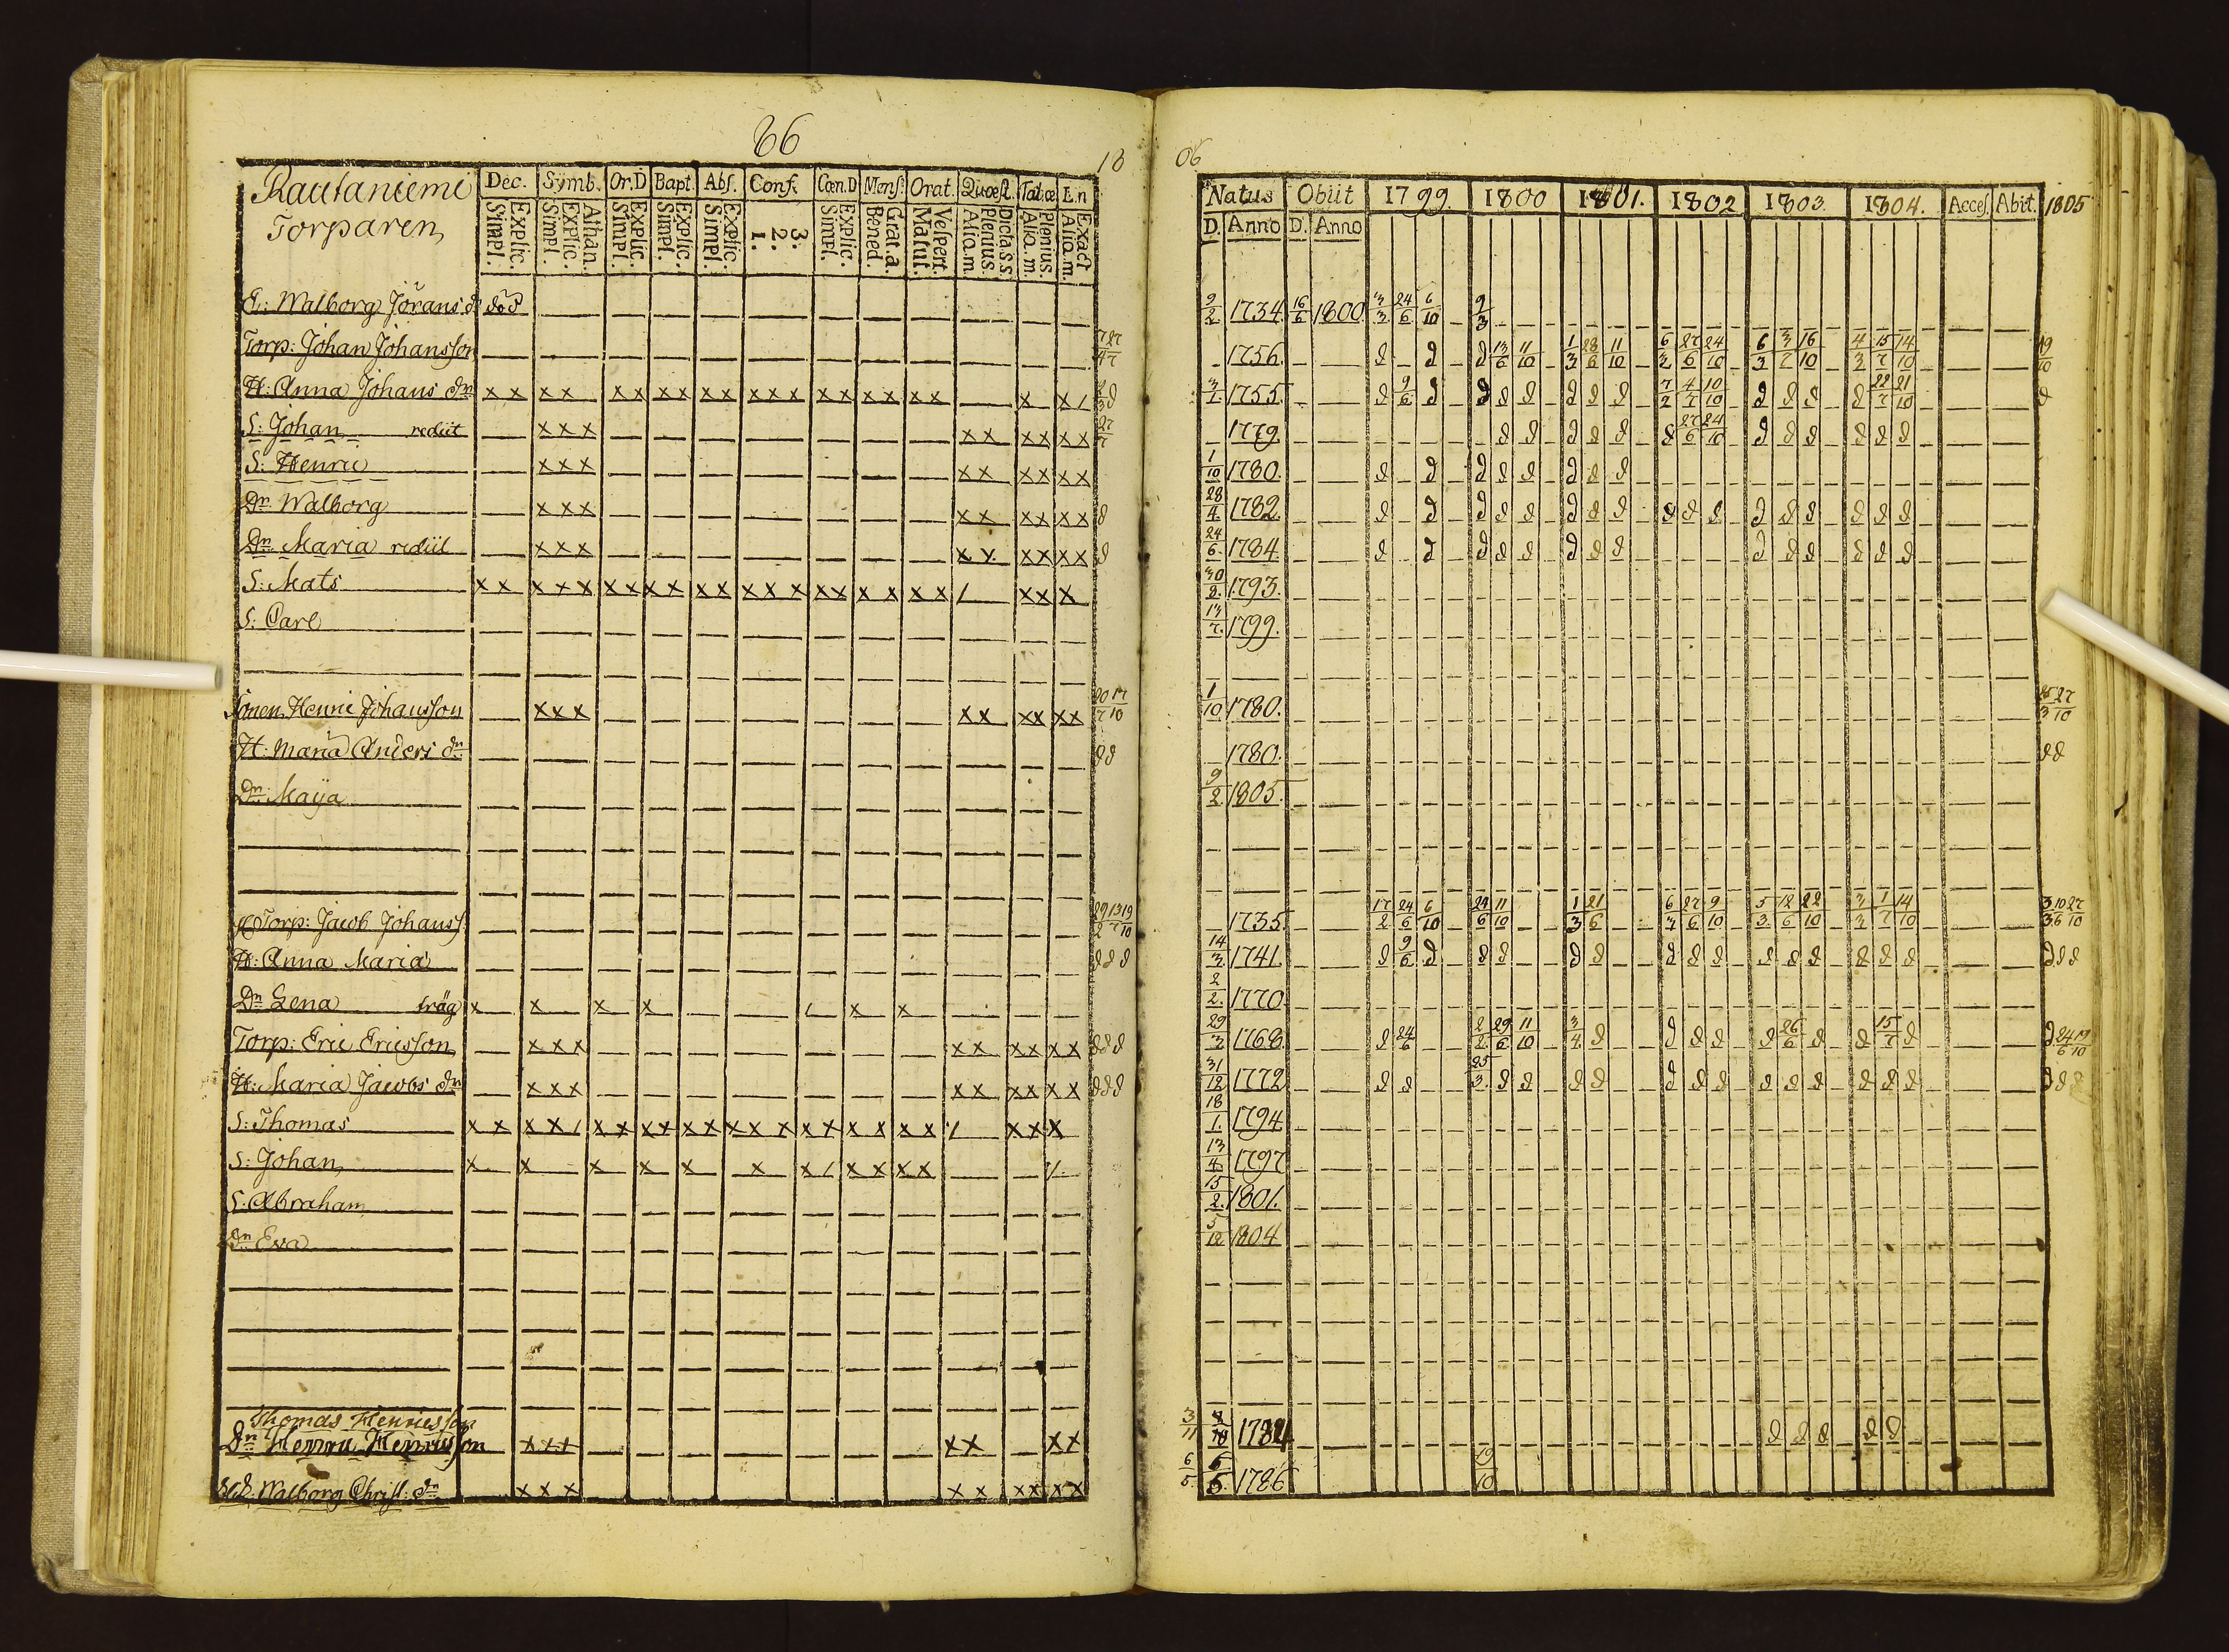 66
18 06
Rautaniemi
Torparen
Dec. Symb. Or.D Bapt. Abs. Conf. Cœn.D Mens. Orat. Quæst. Tab.œ E.n
Simpl. Explic. Simpl. Explic. Athan. Simpl. Explic. Simpl. Explic. Simpl. Explic. 1. 2. 3. Simpl. Explic. Bened. Grat.a. Matut. Vespert. Aliq.m. Plenius. Dicta s.s. Aliq.m. Plenius. Aliq.m. Exact
Natus Obiit 1799. 1800 1801. 1802 1803. 1804. Acces. Abit. 1805
D. Anno D. Anno
E: Walborg Jörans d: död 9/2 1734. 16/6 1800. 3/3 24/6 6/10 9/3
Torp: Johan Johansson 1756. d d d 13/6 11/10 1/3 28/6 11/10 6/3 27/6 24/10 6/3 3/7 16/10 4/3 15/7 14/10 19/10
H: Anna Johans dn x x x x x x x x x x x x x x x x x x x x x 3/7 1755. d 9/6 d d d d d d d 7/2 4/7 10/10 d d d d 22/7 21/10 d
S: Johan rediit x x x x x x x x x 27/7 1779 d d d d d d 27/6 24/10 d d d d d d
S: Henric x x x x x x x x x 1/10 1780. d d d d d d d d
Dn Walborg x x x x x x x x x d 28/4 1782. d d d d d d d d d d d d d d d d d
Dn Maria rediit x x x x x x x x x d 24/6 1784. d d d d d d d d d d d d d d
S: Mats x x x x x x x x x x x x x x x x x x x x x x / x x x 30/8 1793.
S: Carl 13/7 1799.
Sonen Henric Johansson x x x x x x x x x 20/7 17/10 1/10 1780. 27/10
H: Maria Anders dn d d 1780. d d
Dn Maija 9/2 1805.
Torp: Jacob Johanss. 1735 17/2 24/6 6/10 29/6 11/10 1/3 21/6 6/3 27/6 9/10 5/3 12/6 22/10 3/3 1/7 14/10 3/3 10/6 27/10
H: Anna Maria d d d 14/3 1741. d 9/6 d d d d d d d d d d d d d d d d d
Dn Lena trög x x x x / x x 2/2 1770
Torp: Eric Ericsson x x x x x x x x x d d d 29/3 1768. d 24/6 2/2 29/6 11/10 3/4 d d d d d 26/6 d d 15/7 d d 24/6 19/10
H: Maria Jacobs dn x x x x x x x x x d d d 31/12 1772 d d 25/3 d d d d d d d d d d d d d d d d
S: Thomas x x x x / x x x x x x x x x x x x x x x / x x x 18/1 1794
S: Johan x x x x x x x / x x x x / 13/4 1797
S: Abraham 15/2 1801.
dn Eva 5/12 1804
Thomas Henricsson
Dn Henric Henricsson x x x x x x x 3/11 8/10 1784 d d d d d
Walborg Christ: dn x x x x x x x x x 6/5 6/5 1786 19/10